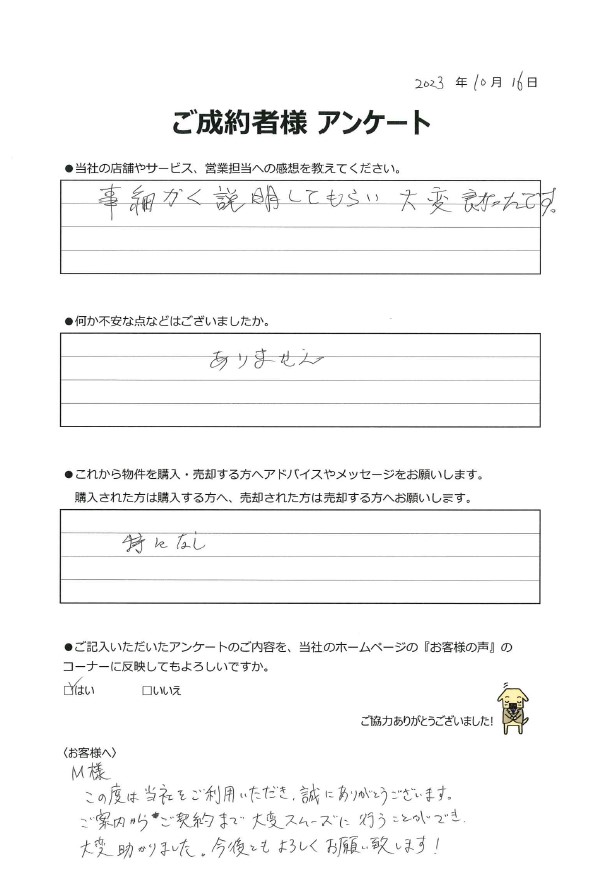 2023 年 10 月 16 日
ご成約者様 アンケート
●当社の店舗やサービス、営業担当への感想を教えてください。
事細かく説明してもらい 大変良かったです。
●何か不安な点などはございましたか。
ありません
●これから物件を購入・売却する方へアドバイスやメッセージをお願いします。
購入された方は購入する方へ、売却された方は売却する方へお願いします。
特になし
●ご記入いただいたアンケートのご内容を、当社のホームページの『お客様の声』の
コーナーに反映してもよろしいですか。
☑はい □いいえ
ご協力ありがとうございました!
〈お客様へ〉
M様
この度は当社をご利用いただき、誠にありがとうございます。
ご案内からご契約まで大変スムーズに行うことができ、
大変助かりました。今後ともよろしくお願い致します！